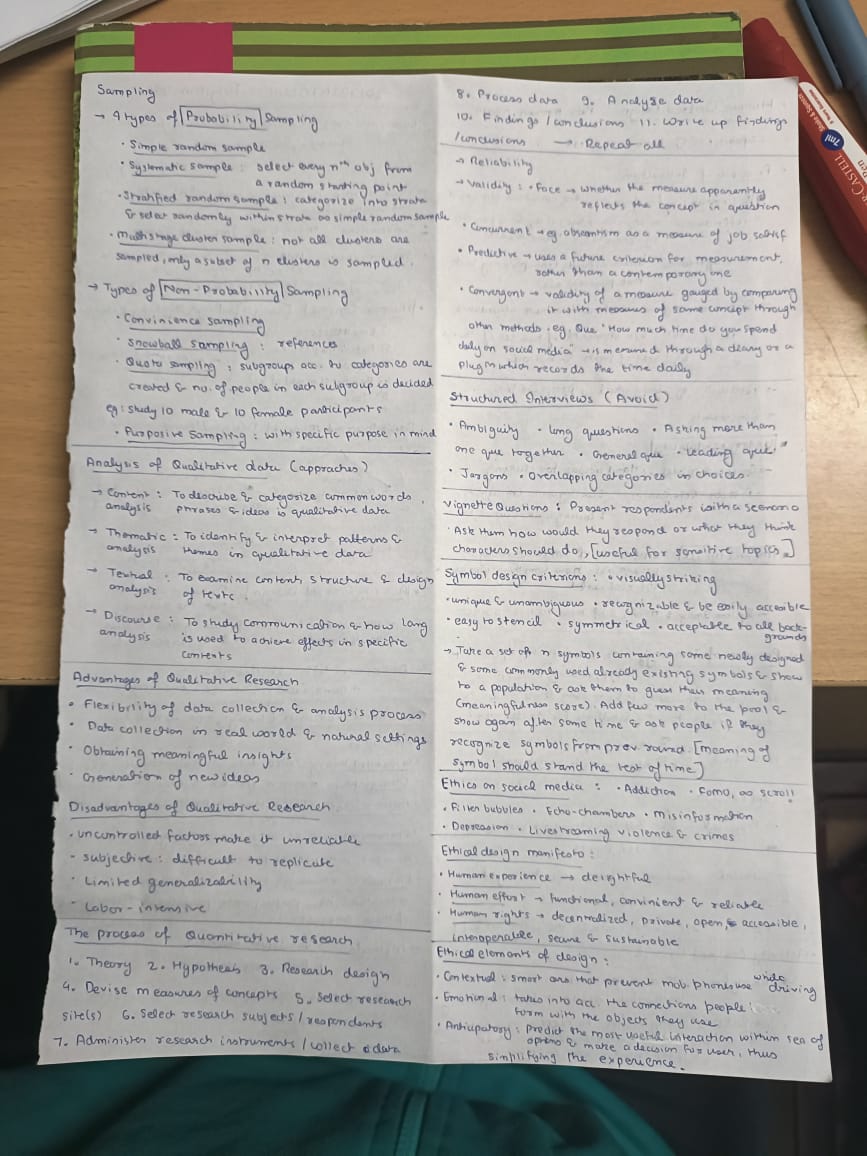 Sampling
→ 4 types of Probability Sampling
• Simple random sample
• Systematic sample : select every nth obj from
a random starting point
• Stratified random sample : categorize into strata
& select randomly within strata as simple random sample
• Multistage cluster sample : not all clusters are
sampled, only a subset of n clusters is sampled.
→ Types of Non-Probability Sampling
• Convinience sampling
• Snowball sampling : references
• Quota sampling : subgroups acc. to categories are
created & no. of people in each subgroup is decided
eg: study 10 male & 10 female participants
• Purposive Sampling : with specific purpose in mind
Analysis of Qualitative data (appraches)
→ Content : To describe & categorize common words,
analysis phrases & ideas is qualitative data
→ Thematic : To identify & interpret patterns &
analysis themes in qualitative data
→ Textual : To examine content, structure & design
analysis of texts.
→ Discourse : To study communication & how lang
analysis is used to achieve effects in specific
contexts
Advantages of Qualitative Research
• Flexibility of data collection & analysis process
• Data collection in real world & natural settings
• Obtaining meaningful insights
• Generation of new ideas
Disadvantages of Qualitative Research
• uncontrolled factors make it unreliable
- subjective : difficult to replicate
• Limited generalizability
• Labor-intensive
The process of Quantitative research
1. Theory 2. Hypothesis 3. Research design
4. Devise measures of concepts 5. Select research
site(s) 6. Select research subjects / respondents
7. Administer research instruments / collect data
8. Process data 9. Analyse data
10. Findings / conclusions 11. Write up findings
/conclusions → Repeat all
→ Reliability
→ Validity : • Face → whether the measure apparently
reflects the concept in question
• Concurrent → eg. absentism as a measure of job satisf
• Predictive → uses a future criterion for measurement,
rather than a contemporary one
• Convergent → validity of a measure gauged by comparing
it with measures of same concept through
other methods. eg. Que "How much time do you spend
daily on social media" → is measured through a diary or a
plugin which records the time daily
Structured Interviews (Avoid)
• Ambiguity • Long questions • Asking more than
one que together • General que • Leading que
• Jargons • Overlapping categories in choices.
Vignette Questions : Present respondents with a scenario
• Ask them how would they respond or what they think
characters should do, [useful for sensitive topics.]
Symbol design criterions : • visually striking
• unique & unambiguous • recognizable & be easily accesible
• easy to stencil • symmetrical • acceptable to all back-
grounds
→ Take a set of n symbols containing some newly designed
& some commonly used already existing symbols & show
to a population & ask them to guess their meaning
(meaningfulness score). Add few more to the pool &
show again after some time & ask people if they
recognize symbols from prev round. [meaning of
symbol should stand the test of time]
Ethics on social media : • Addiction • Fomo, ∞ scroll
• Filter bubbles • Echo-chambers • Misinformation
• Depression • Livestreaming violence & crimes
Ethical design manifesto :
• Human experience → delightful
• Human effort → functional, convinient & reliable
• Human rights → decentralized, private, open, accessible,
interoperable, secure & sustainable
Ethical elements of design :
• Contextual : smart ans that prevent mob. phones use while driving
• Emotional : takes into acc. the connections people
form with the objects they use
• Anticipatory : Predict the most useful interaction within sea of
options & make a decision for user, thus
simplifying the experience.
7ml